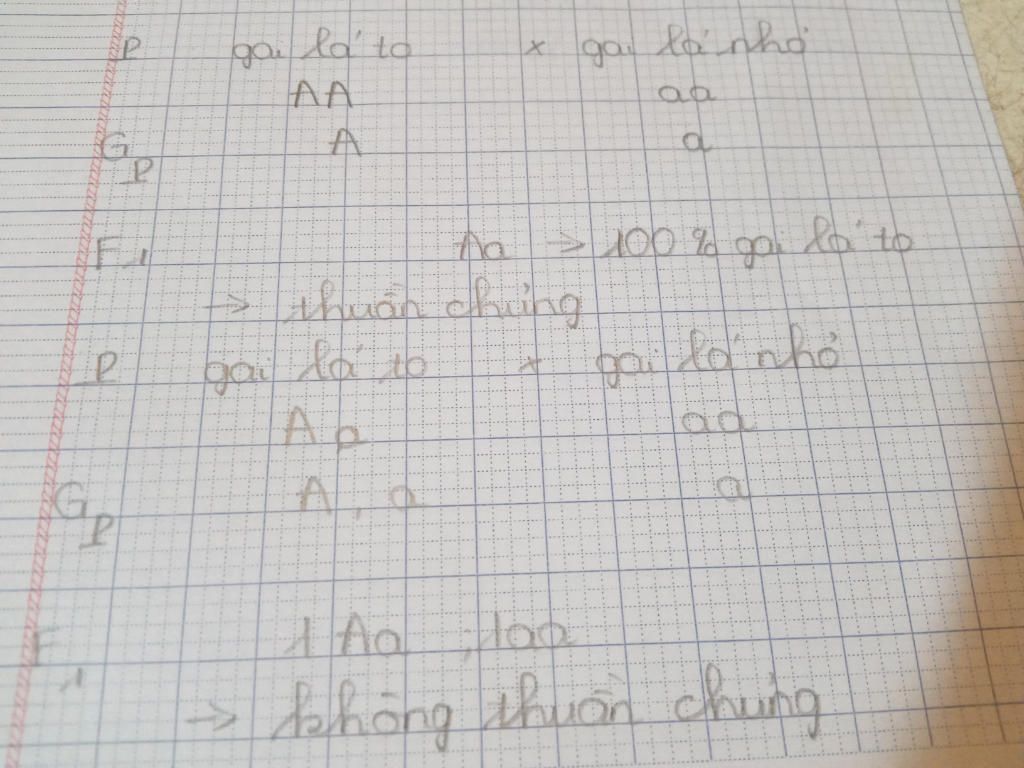 P gai lá to × gai lá nhỏ
AA aa
GP A a
F1 Aa → 100% gai lá to
→ thuần chủng
P gai lá to × gai lá nhỏ
Aa aa
GP A, a a
F1 1 Aa ; 1aa
→ không thuần chủng